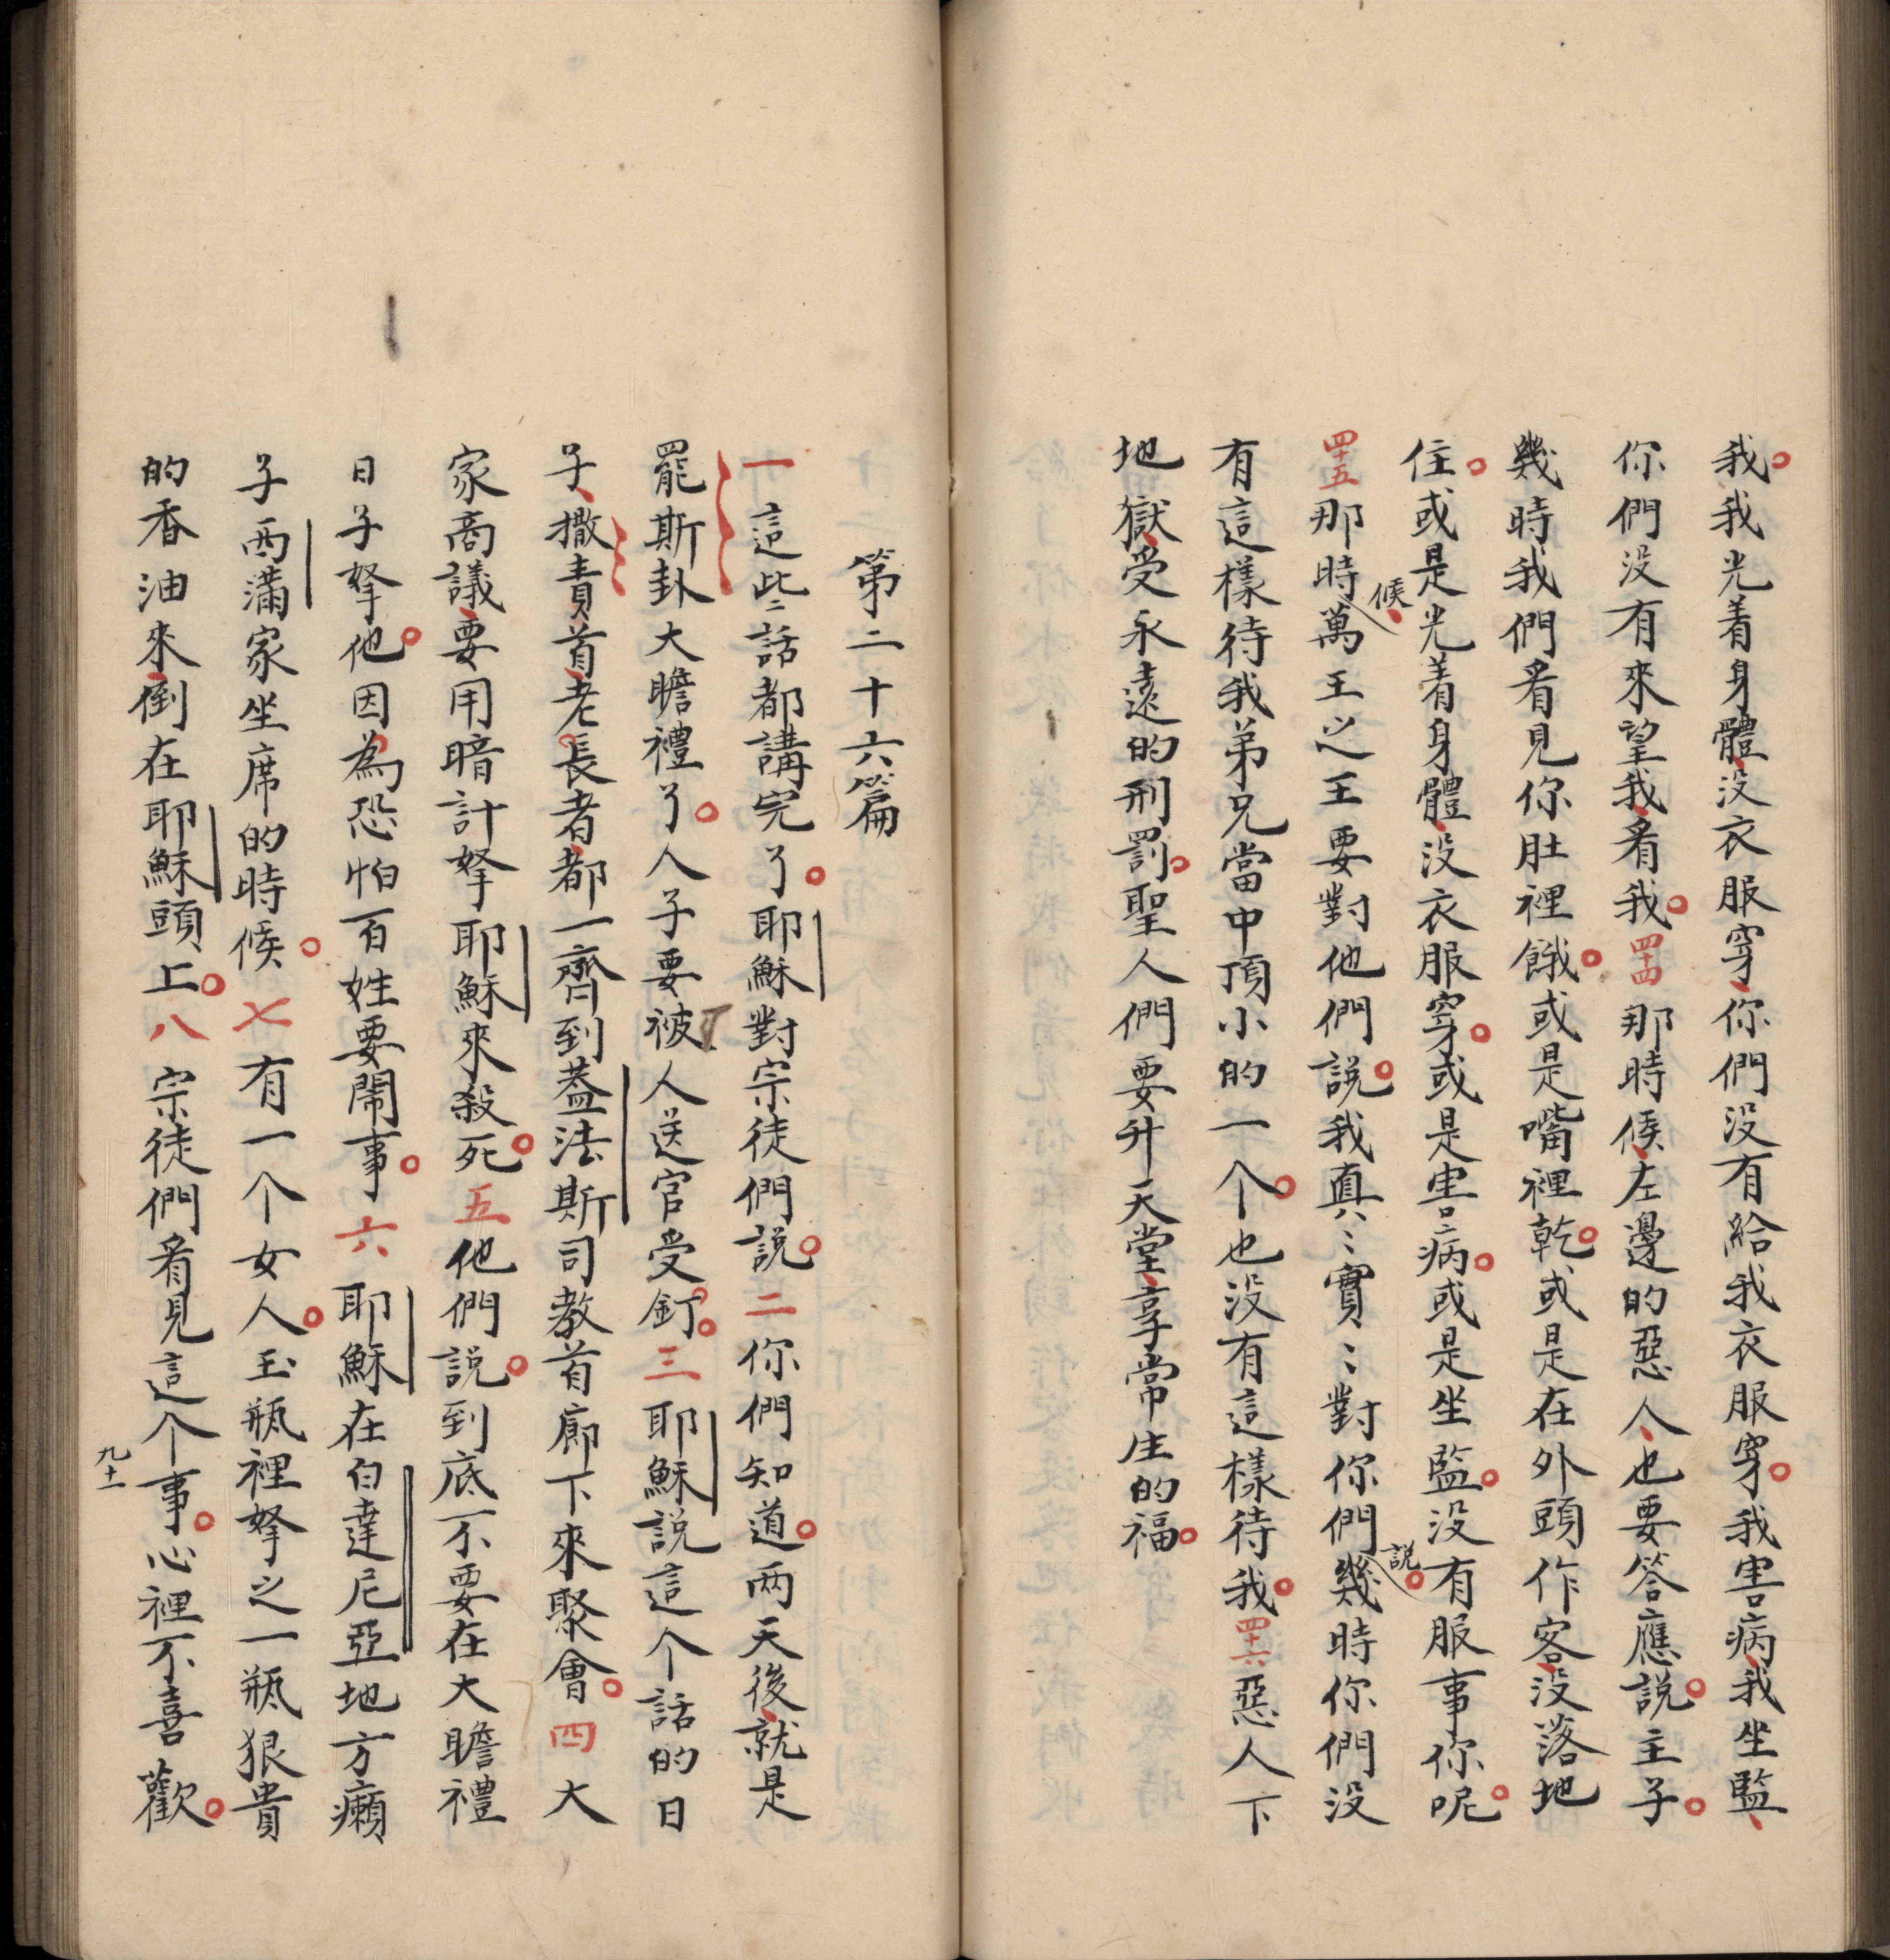 我。我光着身體、没衣服穿、你們没有給我衣服穿。我害病、我坐監、
你們没有來望我、看我。四十四那時候、左邊的惡人、也要答應說。主子。
幾時我們看見你肚裡餓。或是嘴裡乾。或是在外頭作客、没落地
住。或是光着身體、没衣服穿。或是害病。或是坐監。没有服事你呢。
四十五那時候、萬王之王要對他們說。我真〻實〻對你們説。幾時你們没
有這樣待我弟兄當中頂小的一个。也没有這樣待我。四十六惡人下
地獄、受永遠的刑罰。聖人們要升天堂、享常生的福。
第二十六篇
一這些〻話都講完了。耶穌對宗徒們說。二你們知道。两天後、就是
罷斯卦大瞻禮了。人子要被人送官受釘。三耶穌説這个話的日
子、撒責首、老長者、都一齊到葢法斯司教首廊下來聚會。四大
家商議、要用暗計拏耶穌來殺死。五他們説。到底不要在大瞻禮
日子拏他。因為恐怕百姓要鬧事。六耶穌在白達尼亞地方癩
子西滿家坐席的時候。七有一个女人。玉瓶裡拏之一瓶狠貴
的香油來、倒在耶穌頭上。八宗徒們看見這个事。心裡不喜歡。
九十一